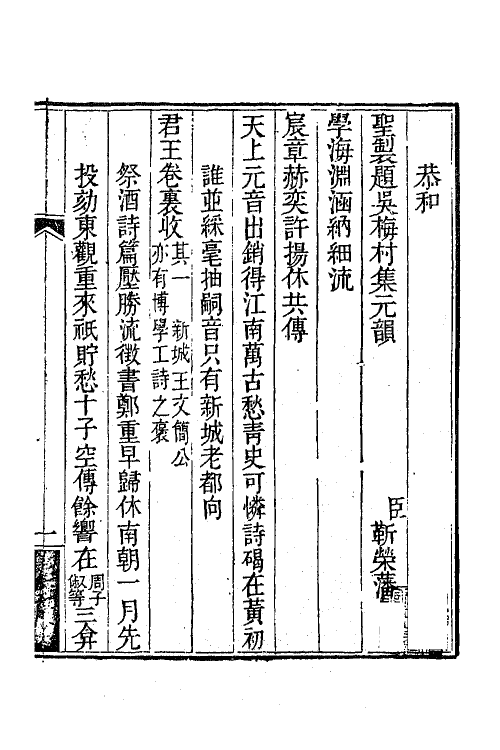 恭和
聖製題吳梅村集元韻
臣靳榮藩
學海淵涵納細流
宸章赫奕許揚休共傳
天上元音出銷得江南萬古愁青史可憐詩碣在黃初
誰並綵毫抽嗣音只有新城老都向
君王卷裏收其一 新城王文簡公
亦有博學工詩之褒
祭酒詩篇壓勝流徵書鄭重早歸休南朝一月先
投劾東觀重來祇貯愁十子空傳餘響在周子
俶等三弇
一